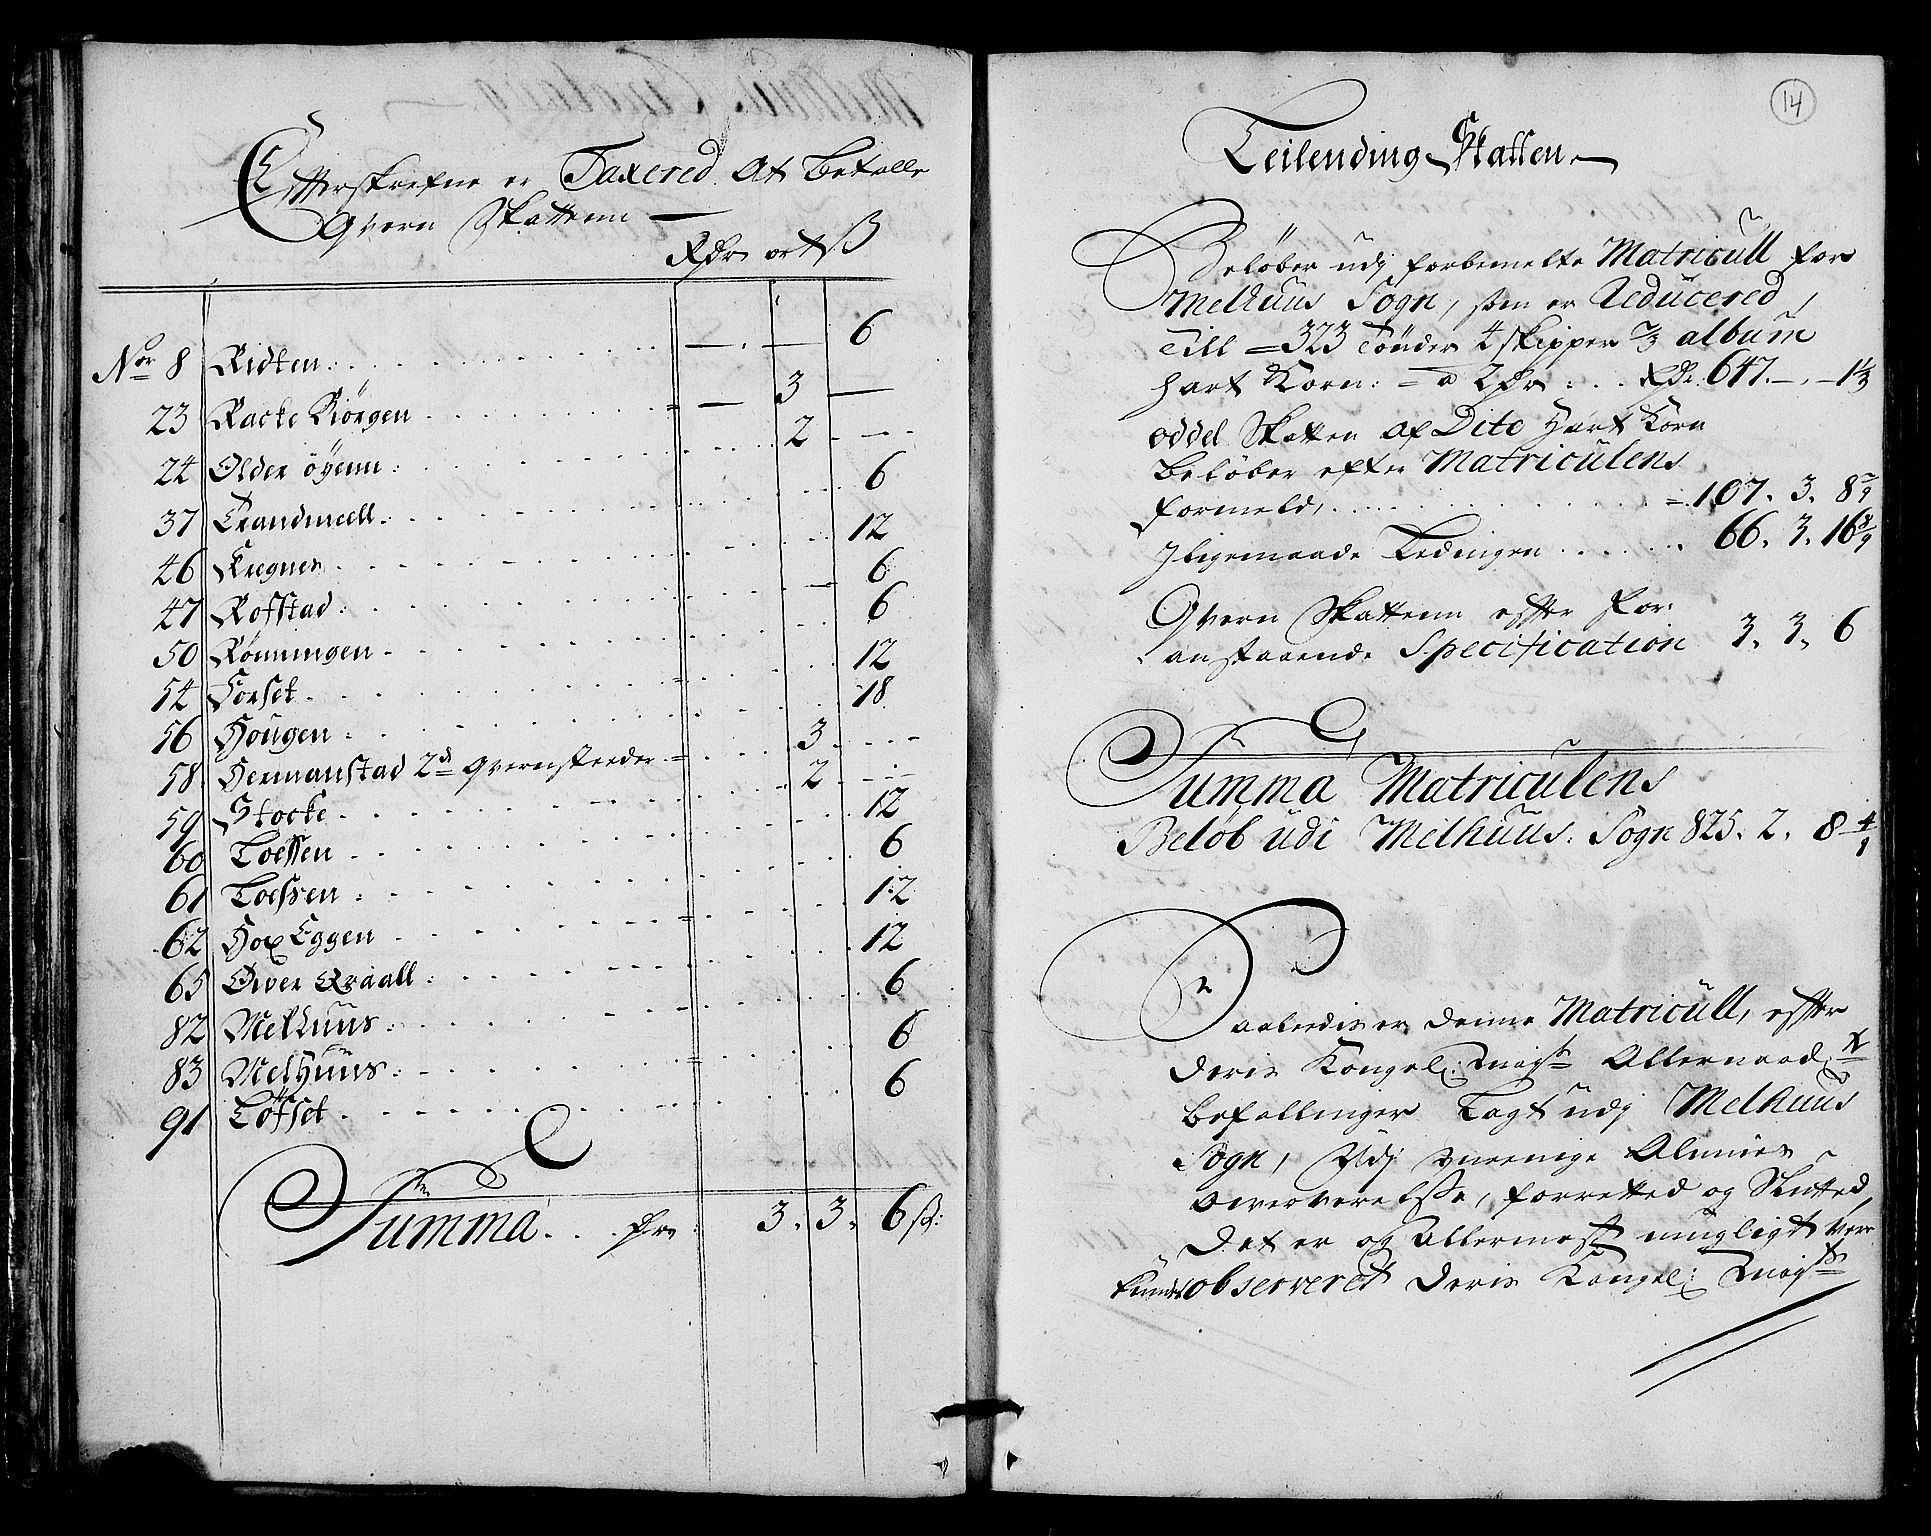 Efterskrefne er Taxered At betalle
Qvern Skattenn
Rdr ort ß
Nor 8 Ridten — — 6
23 Backe Biörgen — 3 —
24 Older öyenn 2 — —
37 Trandmeell 6
46 Kregnes 12
47 Rofstad 6
50 Rönningen 6
54 Forset 12
56 Hougen 18
58 Hermanstad 2de Qvernsteeder 3 — —
59 Stocke 2 — —
60 Loessen 12
61 Loessen 6
62 Hox Eggen 12
65 Øwer Qvaall 12
82 Melhuus 6
83 Melhuus 6
91 Löffset 6
Summa pr 3. 3. 6 ß:
14
Leilending Skatten
Belöber udj forbemelte Matricull for
Melhuus Sogn, som er Reducered,
Till 323 Tönder 4 skipper 2/3 album
hart Korn: a 2 dr Rdr: 647. — . — 1 1/3
Oddel Skatten af Dito Hart Korn
belöber efter Matriculens
formeld, 107. 3. 8 7/9
Jligemaade Ledingen 66. 3. 16 8/9
Qvern Skattenn effter for:
anstaaende Specification 3. 3. 6
Summa Matriculens
Belöb udi Melhuus: Sogn 825. 2. 8
Saaledis er denne Matricull, effter
Deris Kongel: Mayts Allernaad:
befallinger Lagt udj Melhuus
Sogn, Udj meenige Almues
Owerverelsse, forretted og Slutted,
Det er og Allermest mugligt ver
kunde observeret Deris Kongel: Mayts